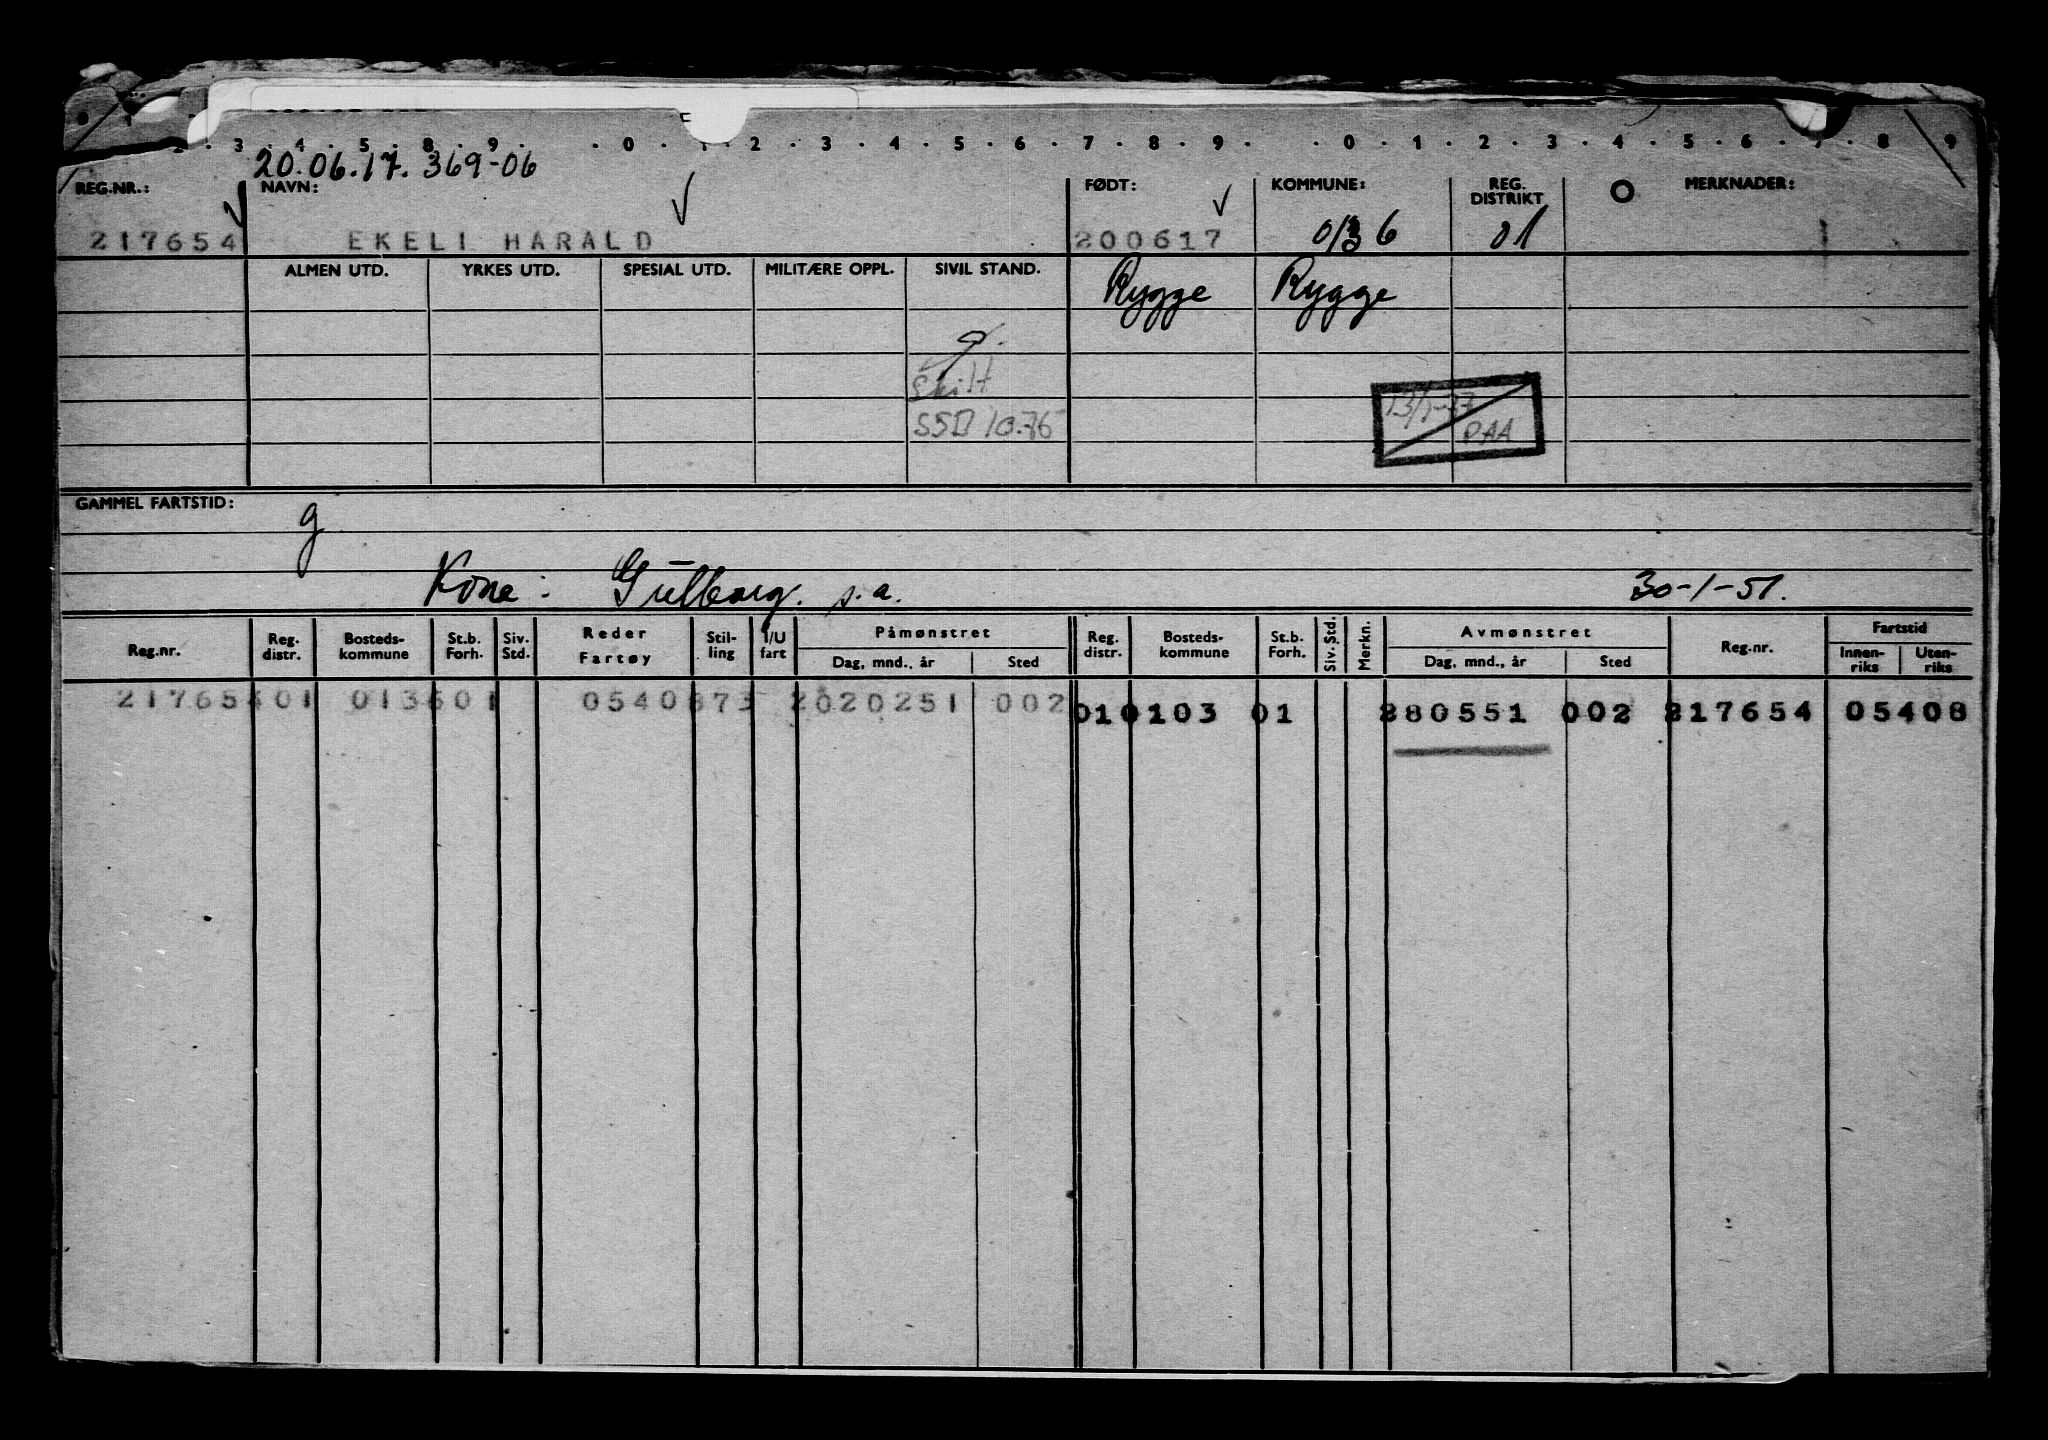 2 . 3 . 4 . 5 . 8 . 9 . . 0 . 1 . 2 . 3 . 4 . 5 . 6 . 7 . 8 . 9 . . 0 . 1 . 2 . 3 . 4 . 5 . 6 . 7 . 8 9
20.06.17. 369-06
REG.NR.: NAVN: FØDT: KOMMUNE: REG. DISTRIKT MERKNADER:
217654 EKELI HARALD 200617 0136 01
ALMEN UTD. YRKES UTD. SPESIAL UTD. MILITÆRE OPPL. SIVIL STAND. Rygge Rygge
g.
Skilt
SSB 10.76
PAA
GAMMEL FARTSTID:
g
Kone: Gulborg. s.a. 30-1-51.
Reg.nr. Reg. distr. Bosteds-kommune St.b. Forh. Siv. Std. Reder Fartøy Stil-ling I/U fart Påmønstret Dag, mnd., år Sted Reg. distr. Bosteds-kommune St.b. Forh. Siv. Std. Merkn. Avmønstret Dag, mnd., år Sted Reg.nr. Fartstid Innen-riks Uten-riks
217654 01 0136 01 0540873 2 020251 002 01 0103 01 280551 002 217654 05408